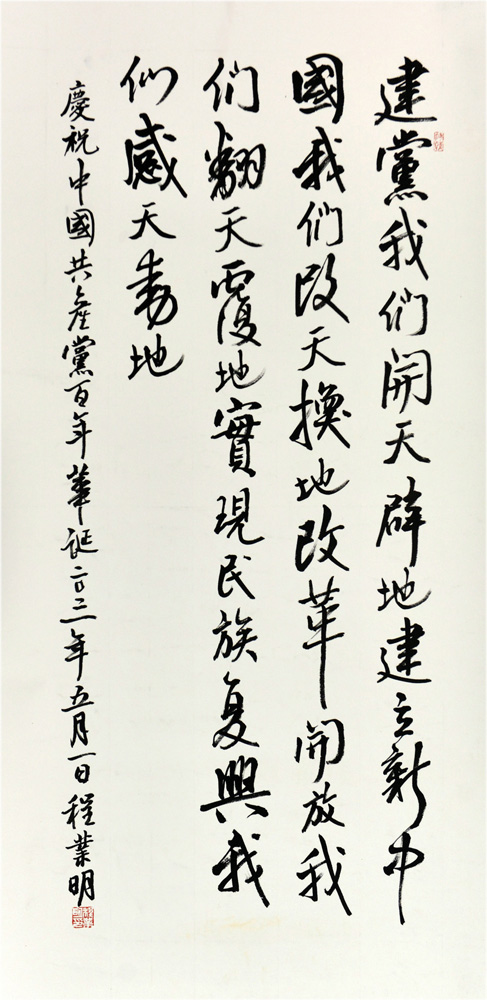 建黨我们開天辟地建立新中
國我们改天換地改革開放我
们翻天覆地實現民族复興我
们感天動地
慶祝中國共產黨百年華誕二〇二一年五月一日程業明